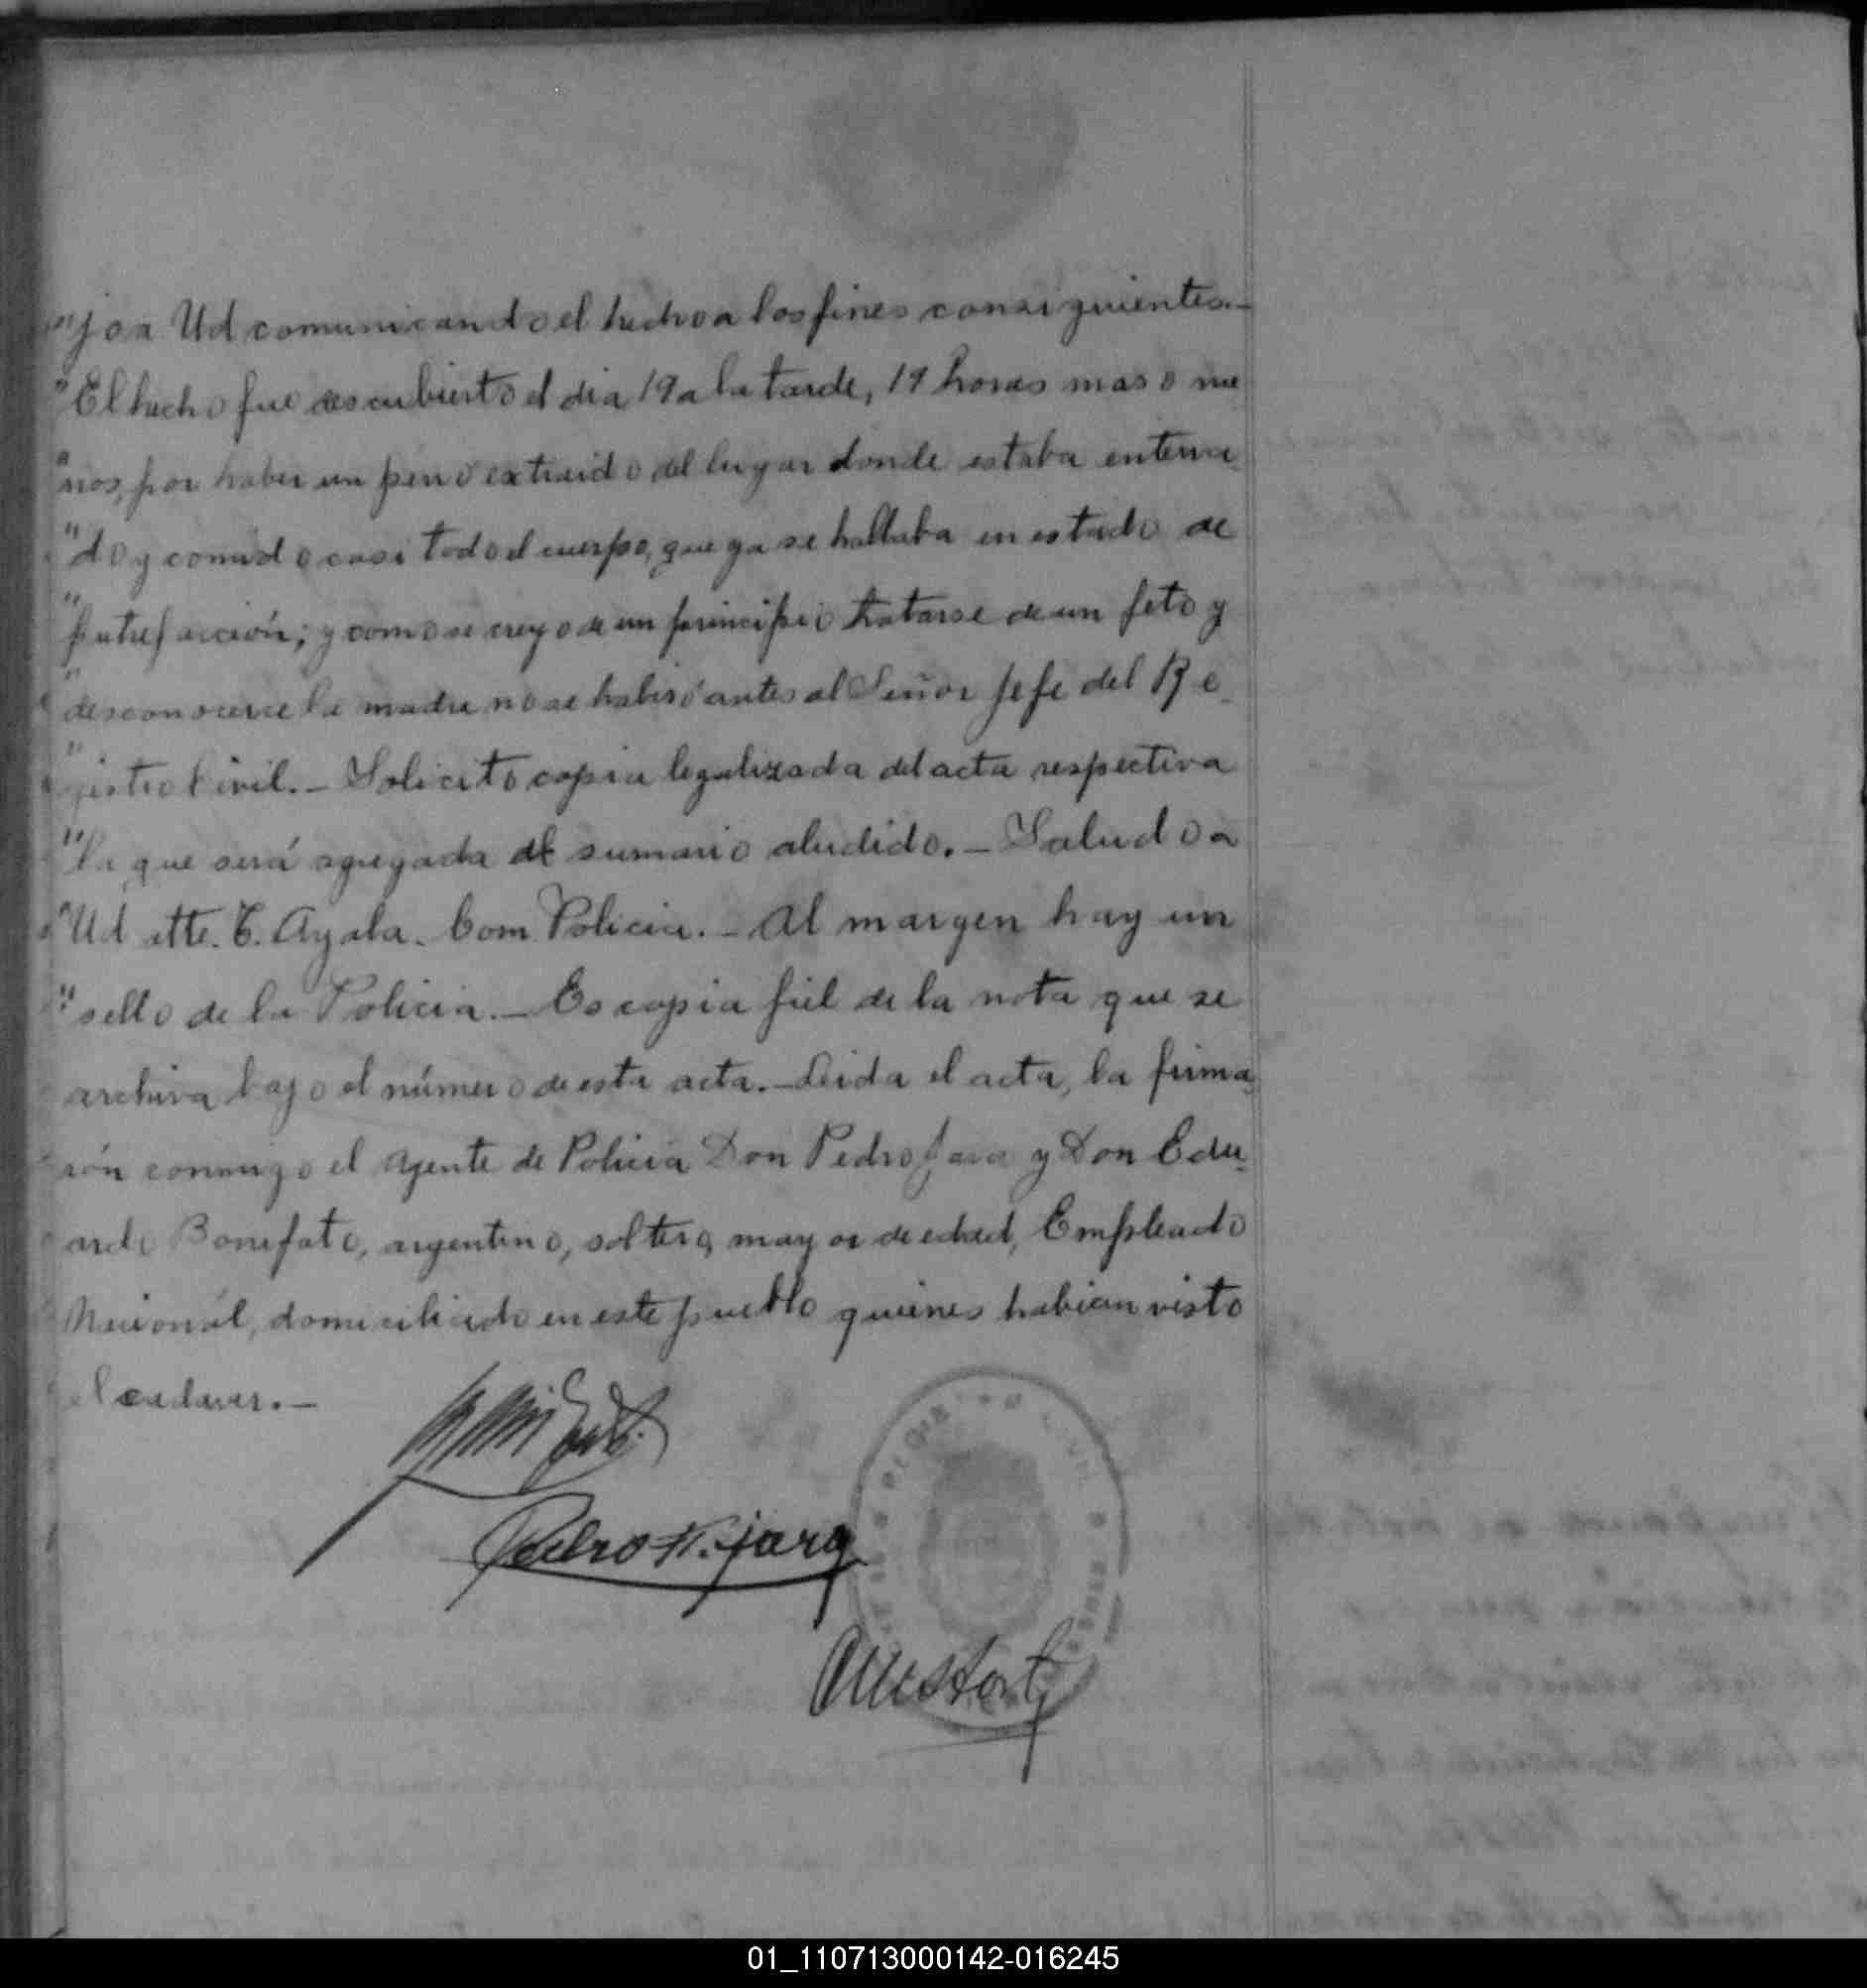 "jo a Ud comunicando el hecho a los fines consiguientes.-
"El hecho fue descubierto el dia 19 a la tarde, 19 horas mas o me
"nos, por haber un perro extraido del lugar donde estaba enterra
"do y comido casi todo el cuerpo, que ya se hallaba en estado de
"putrefacción; y como se creyo de un principio tratarse de un feto y
"desconocerse la madre no se habisó antes al Señor Jefe del Re-
"gistro Civil.- Solicito copia legalizada del acta respectiva
"la que será agregada al sumario aludido.- Saludo a
"Ud atte. E. Ayala. Com. Policia.- Al margen hay un
"sello de la Policia.- Es copia fiel de la nota que se
archiva bajo el número de esta acta.- Leida el acta, la firma-
rón conmigo el Agente de Policia Don Pedro Jara y Don Edu-
ardo Bonifato, argentino, soltero, mayor de edad, Empleado
Nacional, domiciliado en este pueblo quienes habian visto
el cadaver.-
Pedro N. jara
01_110713000142-016245